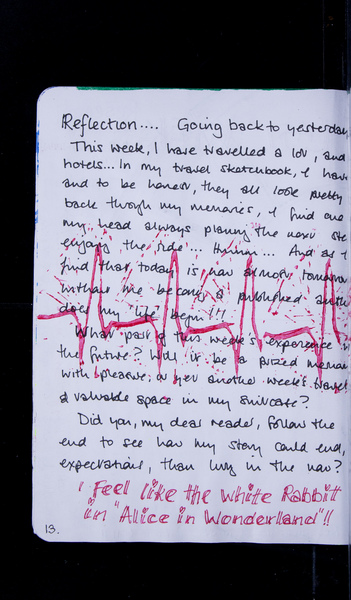 Reflection.... Going back to yesterday
This week, I have travelled a lot, and
hotels... In my travel sketchbook, I have
and to be honest, they all look pretty
back through my memories, I find one
my head always planning the next ste
enjoy the ride... And as I
find that today is now almost tomorrow
without me became a published auth
does my life begin!!!
What part of this week's experience is
the future? Will it be a prized memor
with pleasure, or yet another week's travel
a valuable space in my suitcase?
Did you, my dear reader, follow the
end to see how my story could end,
expectations, than living in the now?
I Feel like the White Rabbit
in "Alice in Wonderland"!!
13.